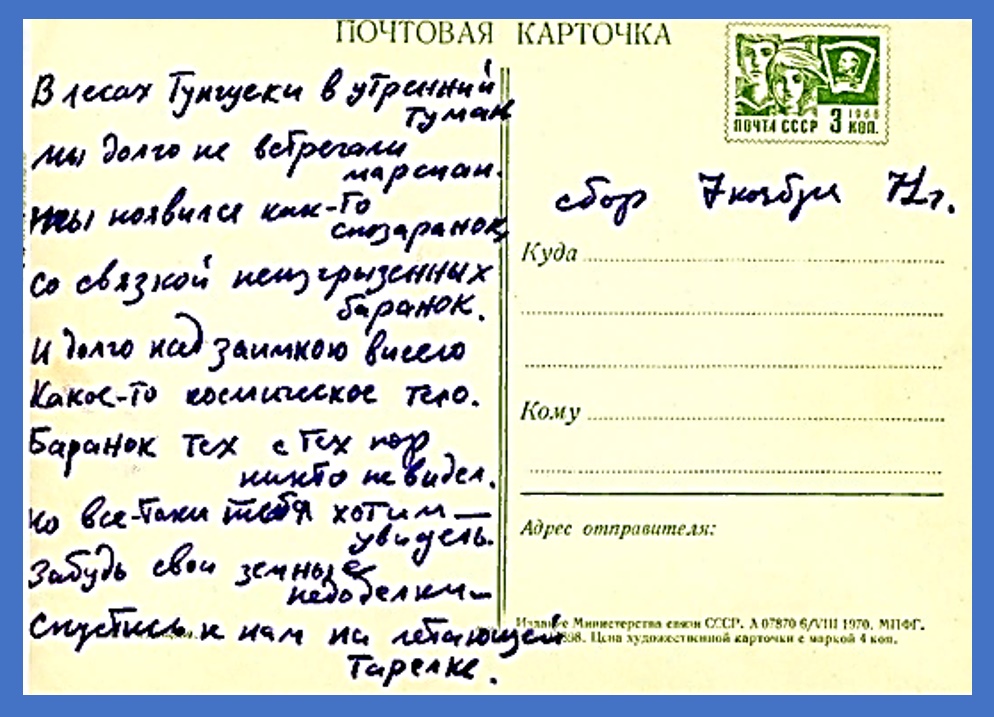 ПОЧТОВАЯ КАРТОЧКА
В лесах Тунгуски в утренний
туман
мы долго не встречали
марсиан.
Ты появился как-то
спозаранок,
со связкой неизгрызенных
баранок.
И долго над заимкою висело
Какое-то космическое тело.
Баранок тех с тех пор
никто не видел.
но все-таки тебя хотим —
увидеть.
Забудь свои земные
недоделки —
Спустись к нам на летающей
Тарелке.
ПОЧТА СССР 3 КОП.
1968
сбор 7 ноября 71 г.
Куда
Кому
Адрес отправителя:
Издание Министерства связи СССР. А 07870 6/VIII 1970. МПФГ.
898. Цена художественной карточки с маркой 4 коп.